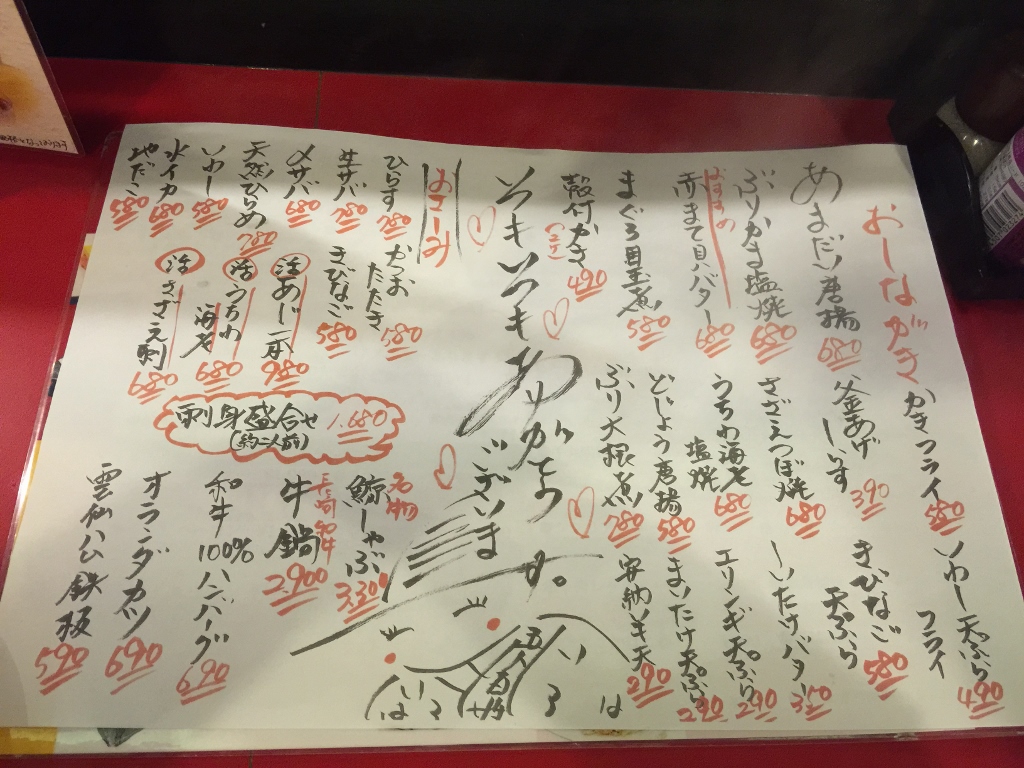 おしながき
あまだい唐揚 680
おすすめ
ぶりかま塩焼 680
赤まて貝バター 680
まぐろ目玉煮 580
殻付かき
490
かきフライ 580
釜あげしらす 390
さざえつぼ焼 680
うちわ海老塩焼 680
どじょう唐揚 580
ぶり大根煮 780
いわし天ぷら
フライ
490
きびなご天ぷら 580
しいたけバター 350
エリンギ天ぷら 290
まいたけ天ぷら 290
安納イモ天 290
いつもいつも
ありがとう
ございます。
おさしみ
ひらす 780
生サバ 780
〆サバ 680
天然ひらめ 780
いわし 580
水イカ 680
地だこ 580
かつおたたき 580
きびなご 580
活あじ一本 980
活うちわ海老 680
活さざえ刺 680
刺身盛合せ 1.680
(約二人前)
名物
鯨しゃぶ
長崎和牛
牛鍋 2.900
和牛100%ハンバーグ 690
オランダカツ 690
雲仙ハム鉄板 590
いろは